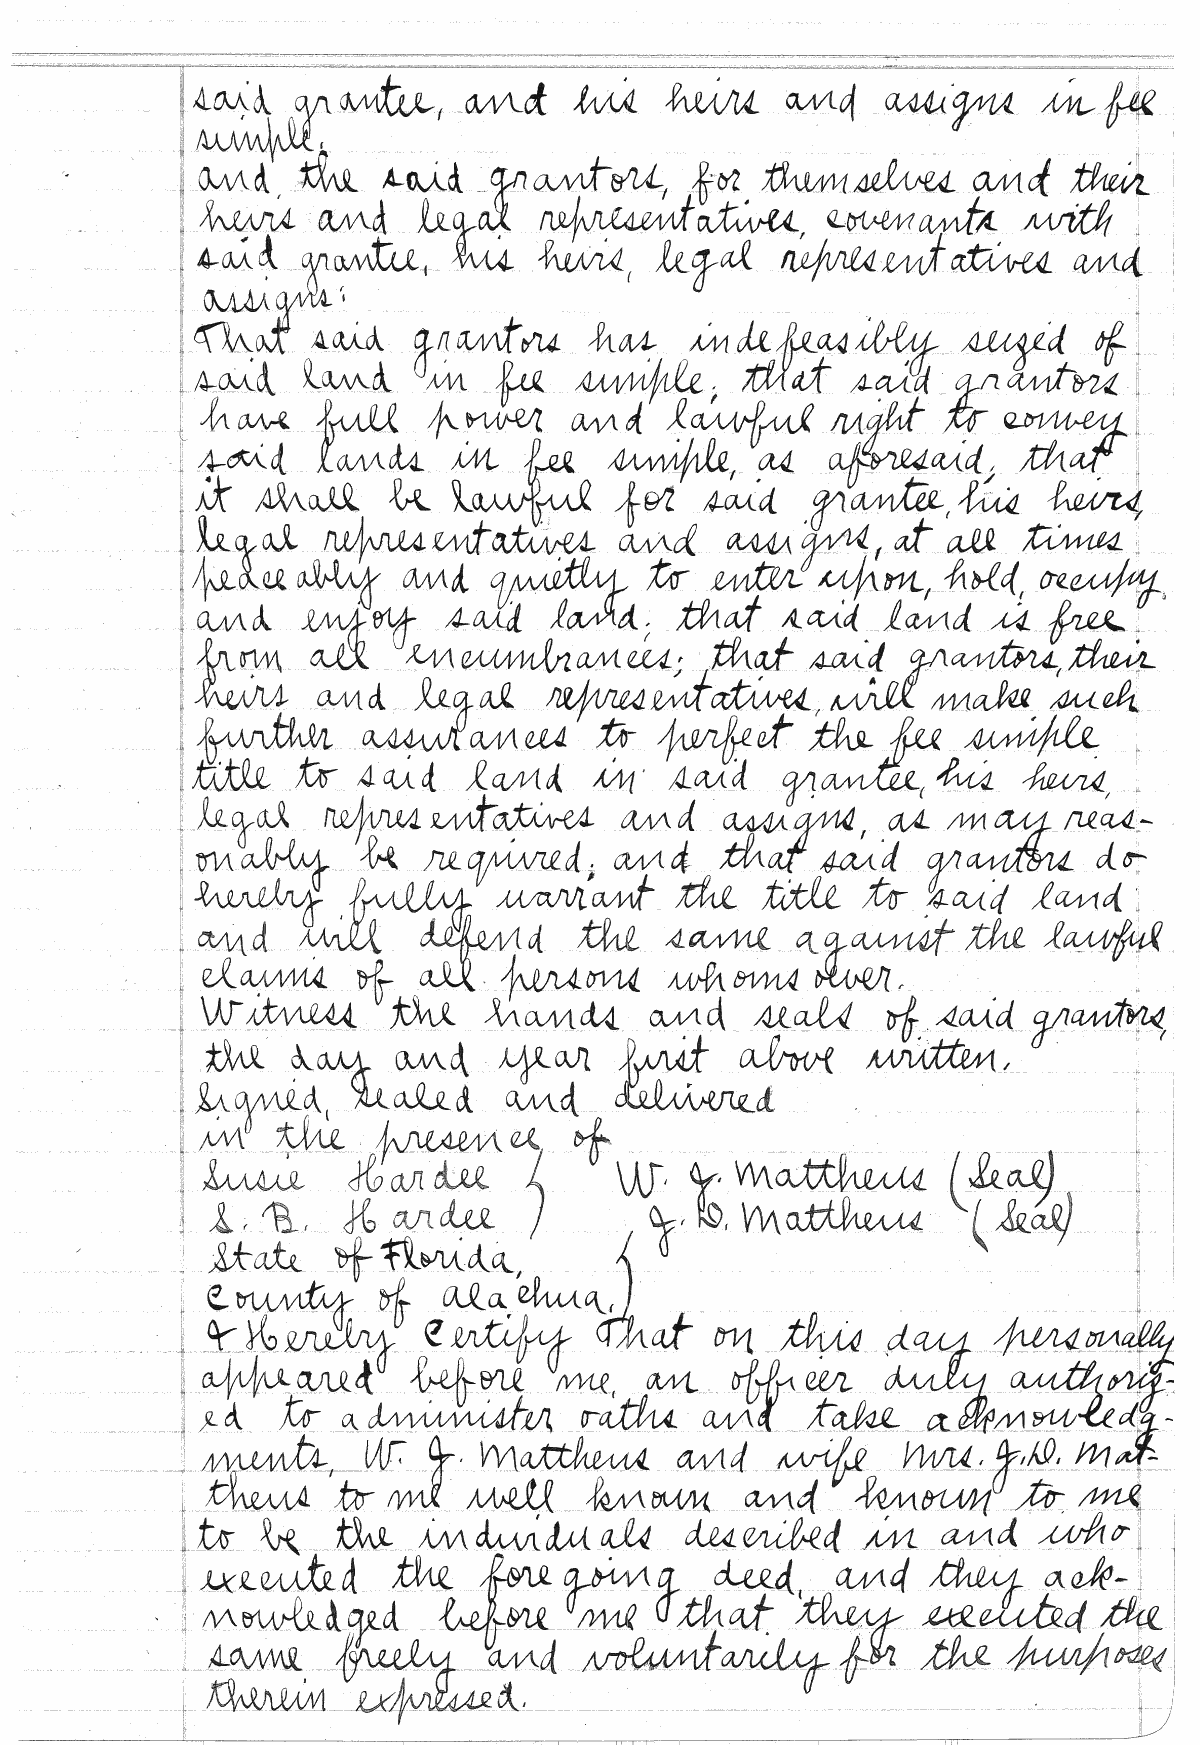 said grantee, and his heirs and assigns in fee
simple.
and the said grantors, for themselves and their
heirs and legal representatives, covenants with
said grantee, his heirs, legal representatives and
assigns:
That said grantors has indefeasibly seized of
said land in fee simple; that said grantors
have full power and lawful right to convey
said lands in fee simple, as aforesaid; that
it shall be lawful for said grantee, his heirs,
legal representatives and assigns, at all times
peaceably and quietly to enter upon, hold, occupy
and enjoy said land; that said land is free
from all encumbrances; that said grantors, their
heirs and legal representatives, will make such
further assurances to perfect the fee simple
title to said land in said grantee, his heirs,
legal representatives and assigns, as may reas-
onably be required; and that said grantors do
hereby fully warrant the title to said land
and will defend the same against the lawful
claims of all persons whomsoever.
Witness the hands and seals of said grantors,
the day and year first above written.
Signed, sealed and delivered
in the presence of
Susie Hardee } W. J. Mattheus (Seal)
S. B. Hardee } J. D. Mattheus (Seal)
State of Florida, }
County of Alachua. }
I Hereby Certify That on this day personally
appeared before me, an officer duly authoriz-
ed to administer oaths and take acknowledg-
ments, W. J. Mattheus and wife Mrs. J. D. Mat-
theus to me well known and known to me
to be the individuals described in and who
executed the foregoing deed, and they ack-
nowledged before me that they executed the
same freely and voluntarily for the purposes
therein expressed.